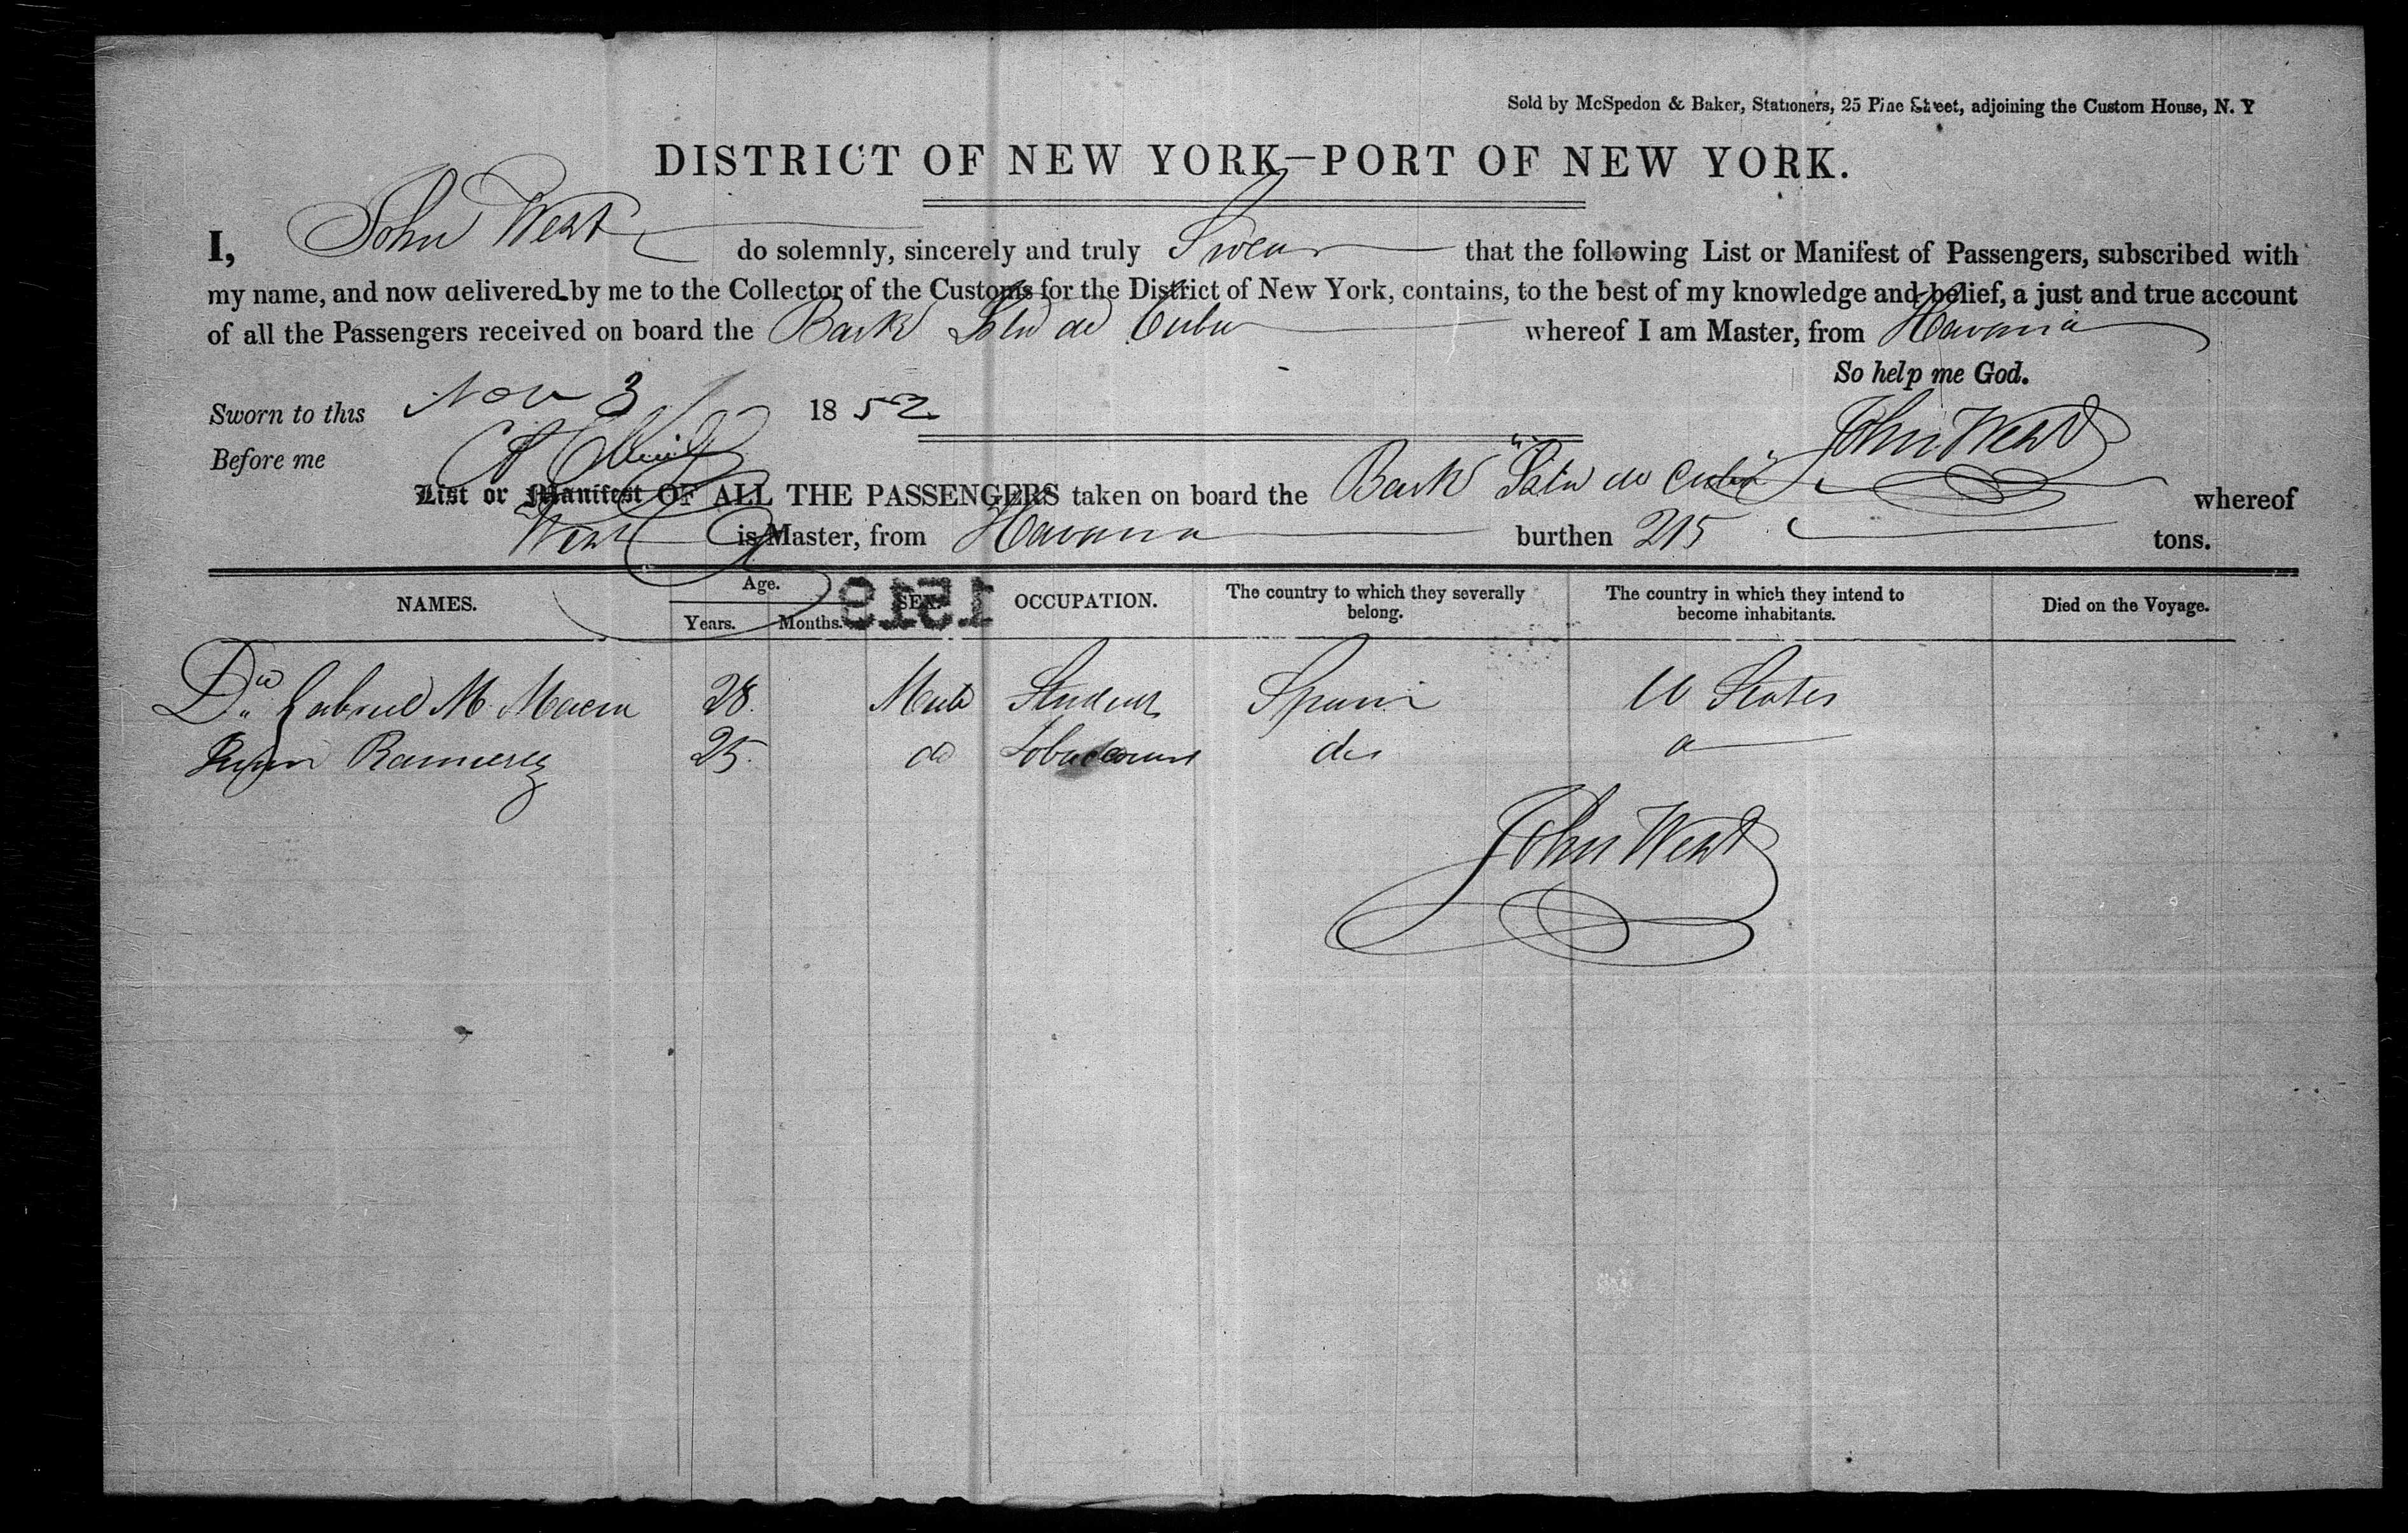 Sold by McSpedon & Baker, Stationers, 25 Pine Street, adjoining the Custom House, N. Y
DISTRICT OF NEW YORK—PORT OF NEW YORK.
I, John West do solemnly, sincerely and truly Swear that the following List or Manifest of Passengers, subscribed with
my name, and now delivered by me to the Collector of the Customs for the District of New York, contains, to the best of my knowledge and belief, a just and true account
of all the Passengers received on board the Bark de Cuba whereof I am Master, from Havana
So help me God.
Sworn to this Nov 3 1852
John West
Before me
List or Manifest OF ALL THE PASSENGERS taken on board the Bark " de Cuba" whereof
West is Master, from Havana burthen 215 tons.
1518
NAMES. Age. Years. Months. SEX. OCCUPATION. The country to which they severally belong. The country in which they intend to become inhabitants. Died on the Voyage.
Gabriel M. 28. Male Student Spain U States
Ramirez 25. do do
John West